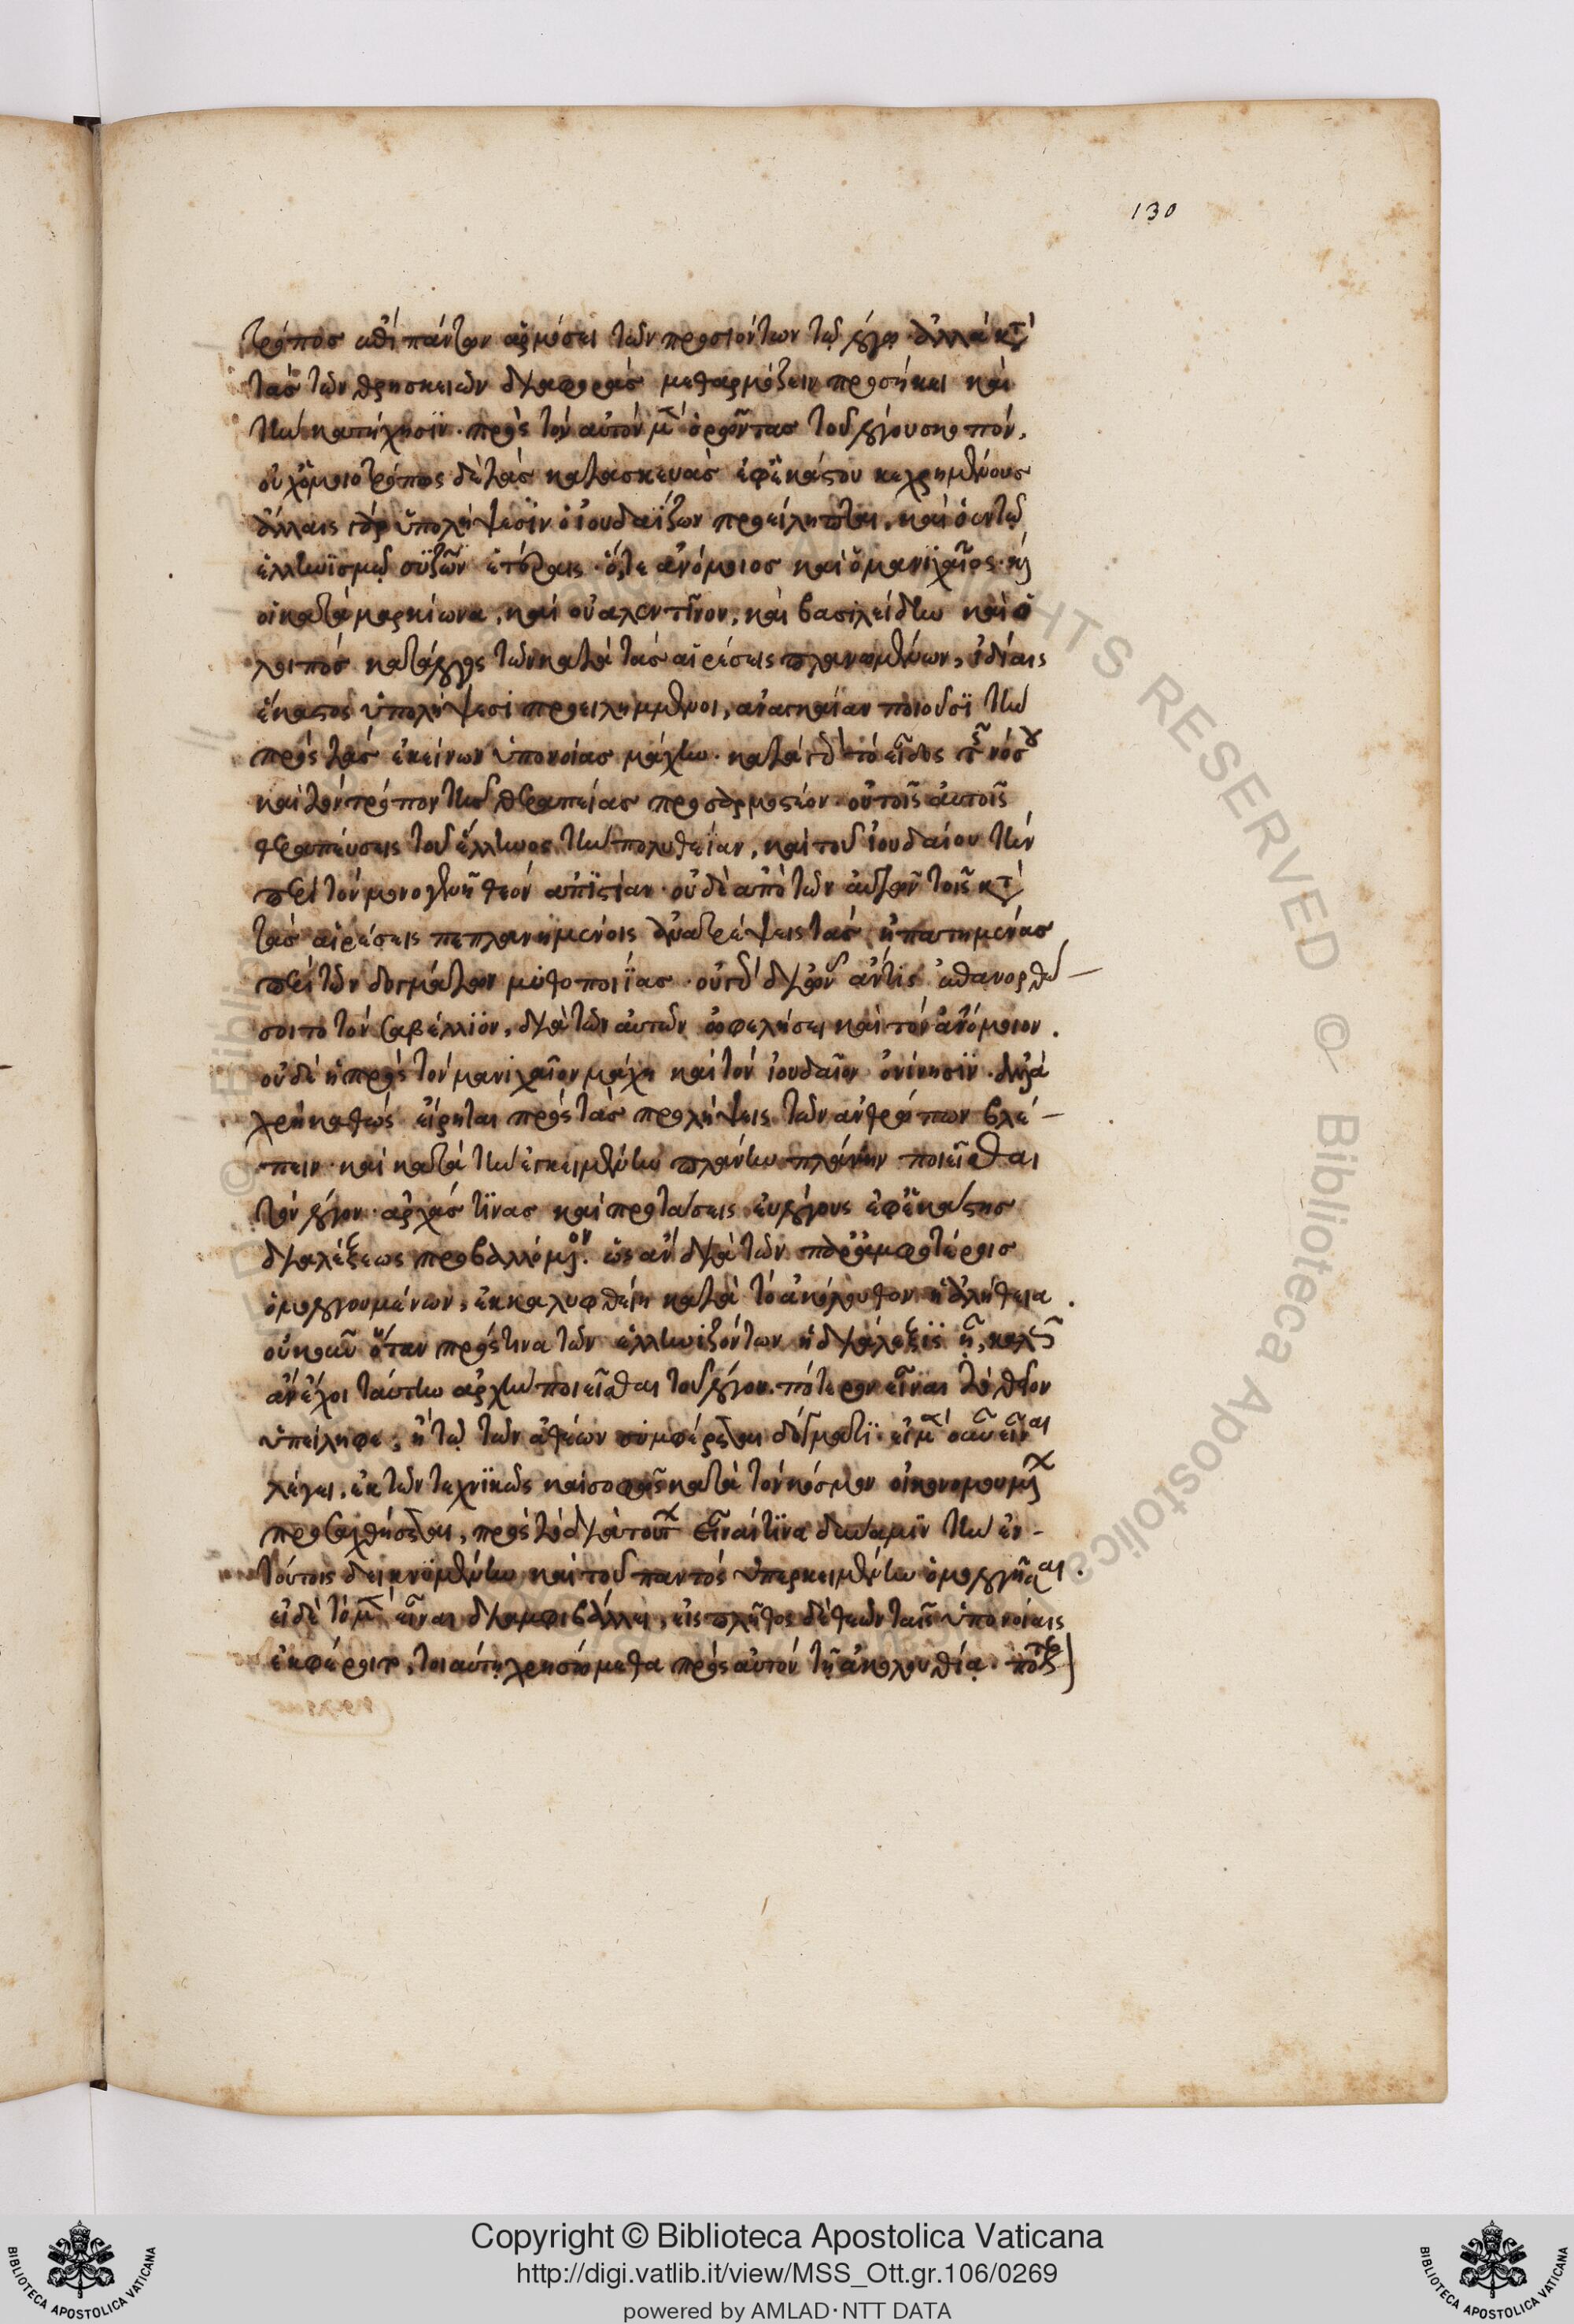 130
τρόπος ἐπὶ πάντων ἁρμόσει τῶν προσιόντων τῷ λόγῳ· ἀλλὰ κατὰ
τὰς τῶν θρησκειῶν διαφορὰς μεθαρμόζειν προσήκει καὶ
τὴν κατήχησιν· πρὸς τὸν αὐτὸν μὲν ὁρῶντας τοῦ λόγου σκοπόν,
οὐχ ὁμοιοτρόπως δὲ τὰς κατασκευὰς ἐφ' ἑκάστου κεχρημένους
ἄλλαις γὰρ ὑπολήψεσιν ὁ ἰουδαΐζων προείληπται, καὶ ὁ ἐν τῷ
ἑλληνισμῷ συζῶν ἑτέραις· ὅ, τε ἀνόμοιος καὶ ὁ μανιχαῖος· καὶ
οἱ κατὰ μαρκίωνα, καὶ οὐαλεντῖνον, καὶ βασιλείδην καὶ ὁ
λοιπὸς κατάλογος τῶν κατὰ τὰς αἱρέσεις πλανωμένων, ἰδίαις
ἕκαστος ὑπολήψεσι προειλημμένοι, ἀναγκαίαν ποιοῦσι τὴν
πρὸς τὰς ἐκείνων ὑπονοίας μάχην· κατὰ γὰρ τὸ εἶδος τῆς νόσου
καὶ τὸν τρόπον τῆς θεραπείας προσαρμοστέον· οὐ τοῖς αὐτοῖς
θεραπεύσεις τοῦ ἕλληνος τὴν πολυθεΐαν, καὶ τοῦ ἰουδαίου τὴν
περὶ τὸν μονογενῆ θεὸν ἀπιστίαν· οὐδὲ ἀπὸ τῶν αὐτῶν τοῖς κατὰ
τὰς αἱρέσεις πεπλανημένοις ἀνατρέψεις τὰς ἠπατημένας
περὶ τῶν δογμάτων μυθοποιΐας· οὐ γὰρ δι' ὧν ἄν τις ἐπανορθώ-
σοιτο τὸν σαβέλλιον, διὰ τῶν αὐτῶν ὠφελήσει καὶ τὸν ἀνόμοιον.
οὐδὲ ἡ πρὸς τὸν μανιχαῖον μάχη καὶ τὸν ἰουδαῖον ὀνίνησιν· ἀλλὰ
χρὴ καθὼς εἴρηται πρὸς τὰς προλήψεις τῶν ἀνθρώπων βλέ-
πειν· καὶ κατὰ τὴν ἐγκειμένην πλάνην πλάνην ποιεῖσθαι
τὸν λόγον· ἀρχάς τινας καὶ προτάσεις εὐλόγους ἐφ' ἑκάστης
διαλέξεως προβαλλόμενον· ὡς ἂν διὰ τῶν παρ' ἀμφοτέροις
ὁμολογουμένων, ἐκκαλυφθείη κατὰ τὸ ἀκόλουθον ἡ ἀλήθεια.
οὐκοῦν ὅταν πρός τινα τῶν ἑλληνιζόντων ἡ διάλεξις ᾖ, καλῶς
ἂν ἔχοι ταύτην ἀρχὴν ποιεῖσθαι τοῦ λόγου· πότερον εἶναι τὸ θεῖον
ὑπείληφε, ἢ τῷ τῶν ἀθέων συμφέρεται δόγματι· εἰ μὲν οὖν εἶναι
λέγει, ἐκ τῶν τεχνικῶς καὶ σοφῶς κατὰ τὸν κόσμον οἰκονομουμένων
προσαχθήσεται, πρὸς τὸ διὰ τούτων εἶναί τινα δύναμιν τὴν ἐν-
τούτοις δεικνυμένην καὶ τοῦ παντὸς ὑπερκειμένην ὁμολογῆσαι.
εἰ δὲ τὸ μὲν εἶναι διαμφιβάλλει, εἰς πλῆθος δὲ θεῶν ταῖς ὑπονοίαις
ἐκφέροιτο, τοιαύτῃ χρησόμεθα πρὸς αὐτὸν τῇ ἀκολουθίᾳ· πότερον
Copyright © Biblioteca Apostolica Vaticana
http://digi.vatlib.it/view/MSS_Ott.gr.106/0269
powered by AMLAD·NTT DATA